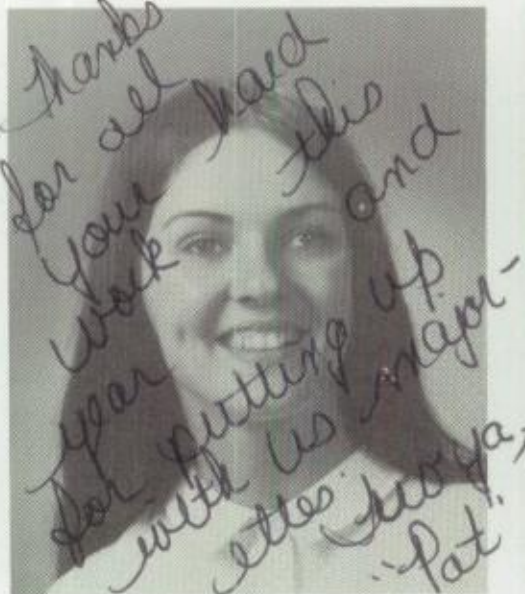 Thanks
for all
your hard
work this
year and
for putting up
with us major-
ettes. Luv ya,
"Pat"